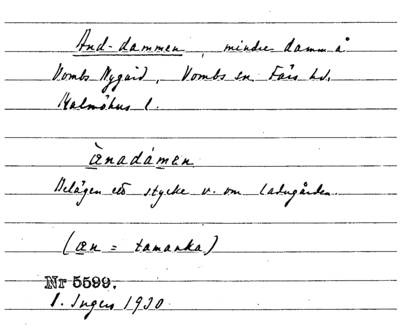 And-dammen, mindre damm å
Vombs Nygård, Vombs sn. Färs hd.
Malmöhus l.
ænadámen
Belägen ett stycke v. om ladugården.
(æn = tamanka)
Nr 5599.
I. Ingers 1930